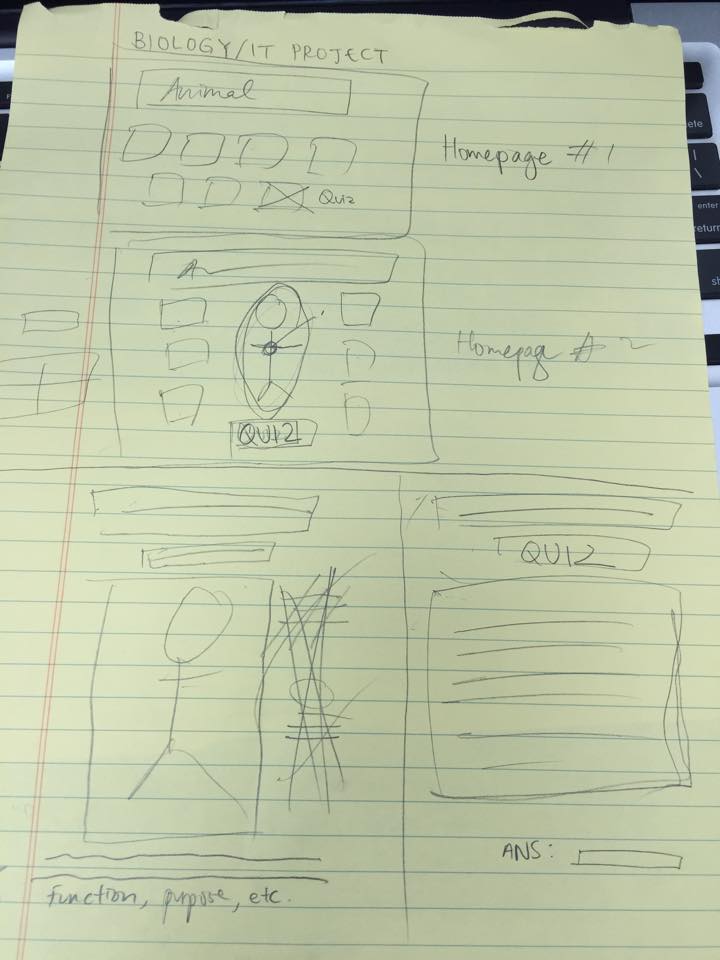 BIOLOGY/IT PROJECT
Animal
Homepage #1
Quiz
A
Homepag #2
QUIZ
QUIZ
ANS:
function, purpose, etc.
ete
enter
return